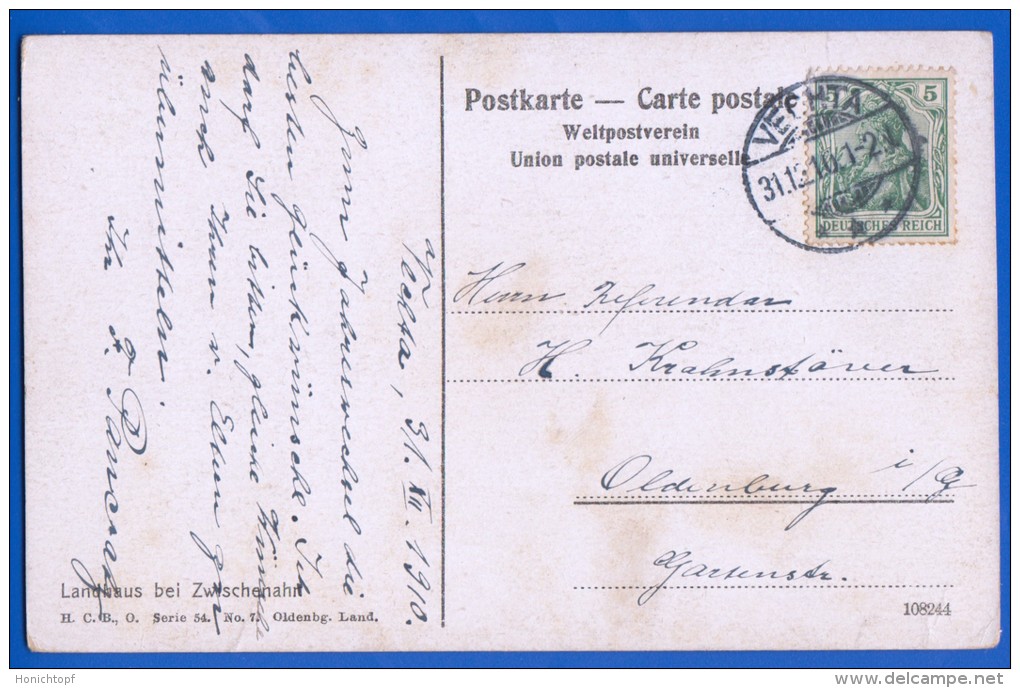 Postkarte — Carte postale
Weltpostverein
Union postale universelle
5
DEUTSCHES REICH
VECHTA
31.12.10.1-2N
Herrn Referendar
H. Krahnstöver
Oldenburg i/G
Gartenstr.
Vechta, 31. XII. 1910.
Zum Jahreswechsel die
besten Glückwünsche. Ich
darf Sie bitten, gleiche Wünsche
auch Ihren v. Eltern zu
übermitteln.
Pancratz
Landhaus bei Zwischenahn
H. C. B., O. Serie 54. No. 7. Oldenbg. Land.
108244
Honichtopf
delcampe.net